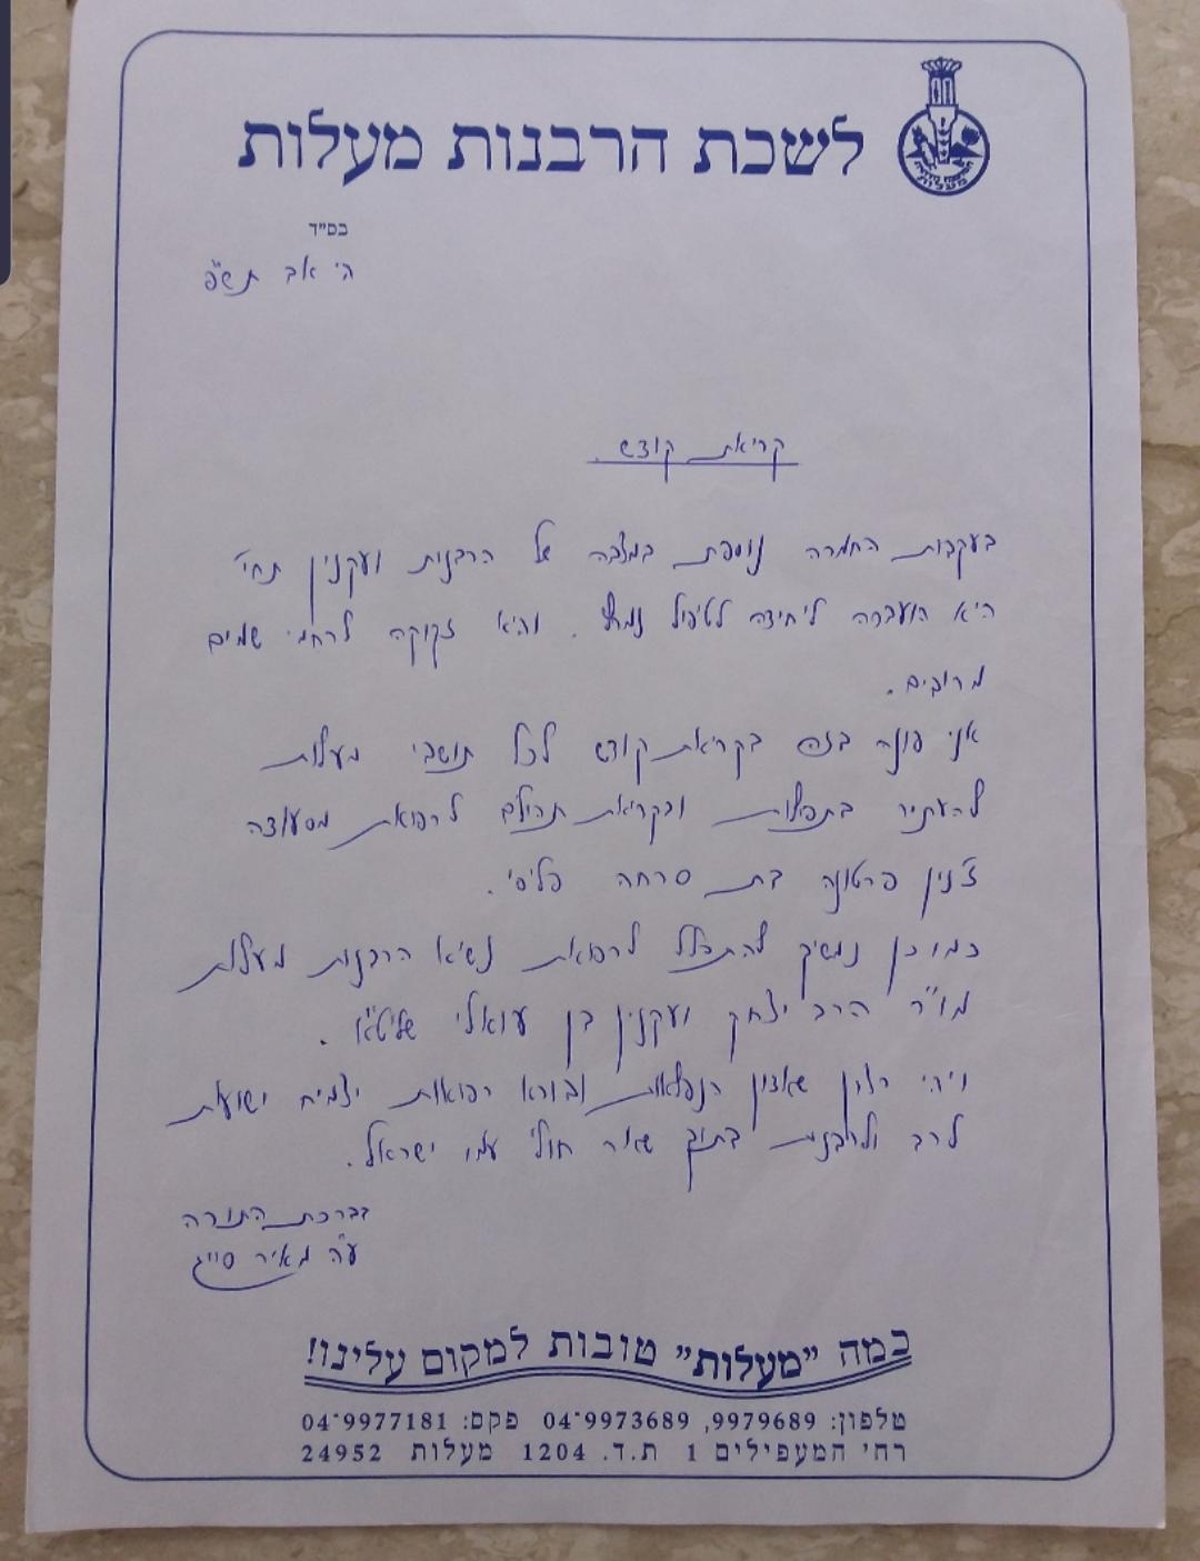 לשכת הרבנות מעלות
בס״ד
ה' אב תש"פ
קריאת קודש
בעקבות החמרה נוספת במצבה של הרבנית ועקנין תחי'
היא הועברה ליחידה לטיפול נמרץ. והיא זקוקה לרחמי שמים
מרובים.
אני פונה בזה בקריאת קודש לכל תושבי מעלות
להעתיר בתפלות ובקריאת תהילים לרפואת מסעודה
ז'נין פרטונה בת סרחה פליסי.
כמו כן נמשיך להתפלל לרפואת נשיא הרבנות מעלות
מו"ר הרב יצחק ועקנין בן עואלי שליט"א.
ויהי רצון שאדון הנפלאות ובורא רפואות יצמיח ישועת
לרב ולרבנית בתוך שאר חולי עמו ישראל.
בברכת התורה
ע"ה מאיר סייג
כמה ״מעלות״ טובות למקום עלינו!
טלפון: 9979689, 04-9973689 פקס: 04-9977181
רחי המעפילים 1 ת.ד. 1204 מעלות 24952